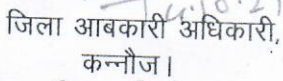 जिला आबकारी अधिकारी,
कन्नौज।